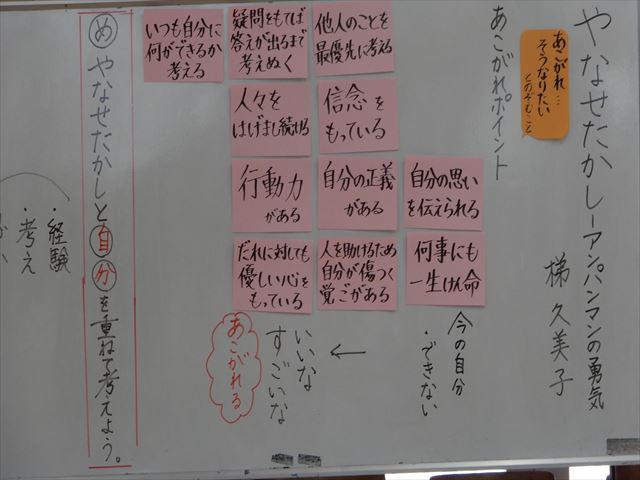 やなせたかしーアンパンマンの勇気
梯 久美子
あこがれ…
そうなりたい
とのぞむこと
あこがれポイント
自分の思い
を伝えられる
何事にも
一生けん命
他人のことを
最優先に考える
信念を
もっている
自分の正義
がある
人を助けるため
自分が傷つく
覚ごがある
疑問をもてば
答えが出るまで
考えぬく
人々を
はげまし続ける
行動力
がある
だれに対しても
優しい心を
もっている
いつも自分に
何ができるか
考える
今の自分
・できない
←
いいな
すごいな
あこがれる
め やなせたかしと自分を重ねて考えよう。
・経験
・考え